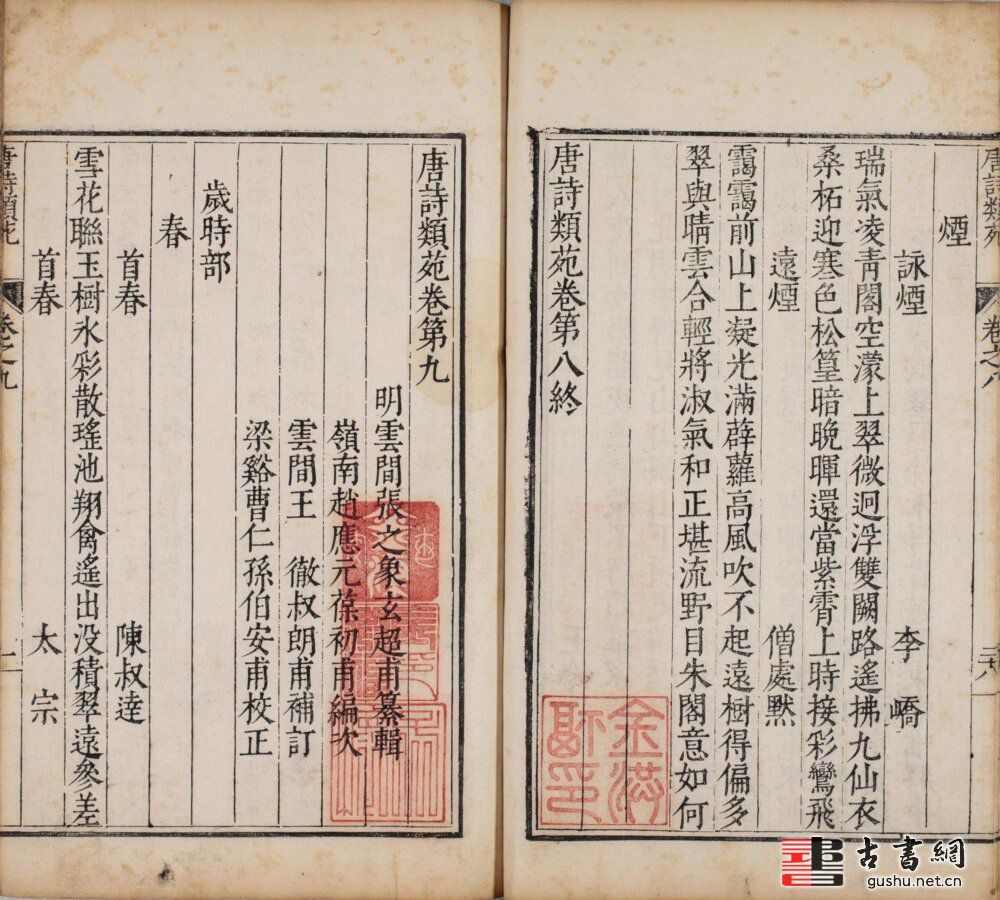 唐詩類苑
卷之八
煙
詠煙 李嶠
瑞氣凌青閣空濛上翠微迥浮雙闕路遙拂九仙衣
桑柘迎寒色松篁暗晚暉還當紫霄上時接彩鸞飛
遠煙 僧處默
靄靄前山上凝光滿薜蘿高風吹不起遠樹得偏多
翠與晴雲合輕將淑氣和正堪流野目朱閣意如何
唐詩類苑卷第八終
唐詩類苑卷第九
明雲間張之象玄超甫纂輯
嶺南趙應元葆初甫編次
雲間王 徹叔朗甫補訂
梁谿曹仁孫伯安甫校正
歲時部
春
首春 陳叔達
雪花聯玉樹氷彩散瑤池翔禽遙出没積翠遠參差
首春 太宗
唐詩類苑
卷之九
一
古書網
gushu.net.cn